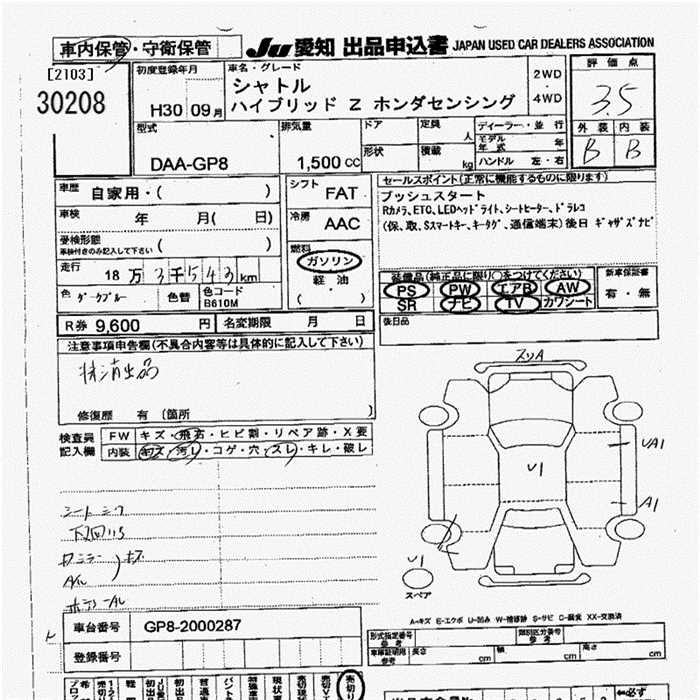 車内保管・守衛保管
JU 愛知 出品申込書 JAPAN USED CAR DEALERS ASSOCIATION
[2103]
30208
初度登録年月
H30 09月
車名・グレード
シャトル
ハイブリッド Z ホンダセンシング
2WD
・
4WD
評価点
3.5
外装 内装
B B
型式
DAA-GP8
排気量
1,500 CC
ドア
形状
定員
人
積載
kg
ディーラー・並行
モデル年式 年
ハンドル 左・右
車歴 自家用・( )
車検 年 月( 日)
受検形態
車検付きのみ記入して下さい
( )
走行 18万3千543km
色 ダークブルー 色替 色コード B610M
シフト FAT
冷房 AAC
燃料
ガソリン
軽・油
( )
セールスポイント(正常に機能するものに限ります)
プッシュスタート
Rカメラ、ETC、LEDヘッドライト、シートヒーター、ドラレコ
(保、取、Sスマートキー、キータグ、通信端末)後日 ギャザズナビ
装備品(純正品に限り○をつけてください)
PS PW エアB AW
SR ナビ TV カワシート
新車保証書
有・無
後日品
R券 9,600 円 名変期限 月 日
注意事項申告欄(不具合内容等は具体的に記入して下さい)
抹消出品
修復歴 有(箇所 )
検査員記入欄
FW キズ・飛石・ヒビ割・リペア跡・X要
内装 キズ・汚レ・コゲ・穴・スレ・キレ・破レ
シートシワ
下回りS
キズ
スリA
UA1
U1
A1
U1
スペア
A-キズ E-エクボ U-凹み W-補修跡 S-サビ C-腐食 XX-交換済
車台番号 GP8-2000287
登録番号
形式指定番号
参考
類別区分番号
参考
車庫証明用
参考
長さ cm
幅 cm
高さ cm
売切り